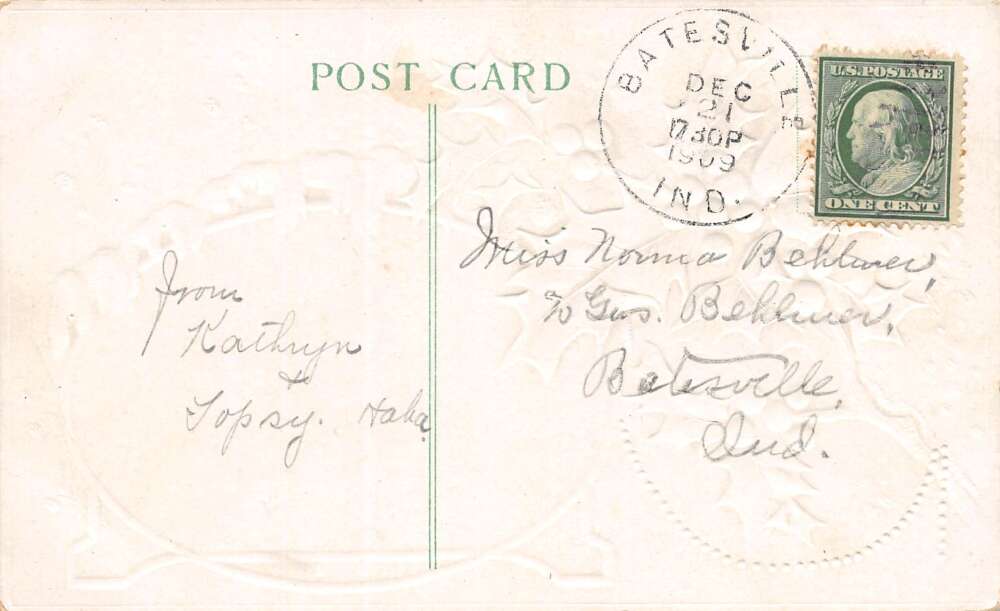 POST CARD
BATESVILLE
DEC
21
1909
IND.
U.S. POSTAGE
ONE CENT
From
Kathryn
+
Topsy. Haha
Miss Norma Behlmer,
c/o Gus. Behlmer,
Batesville,
Ind.